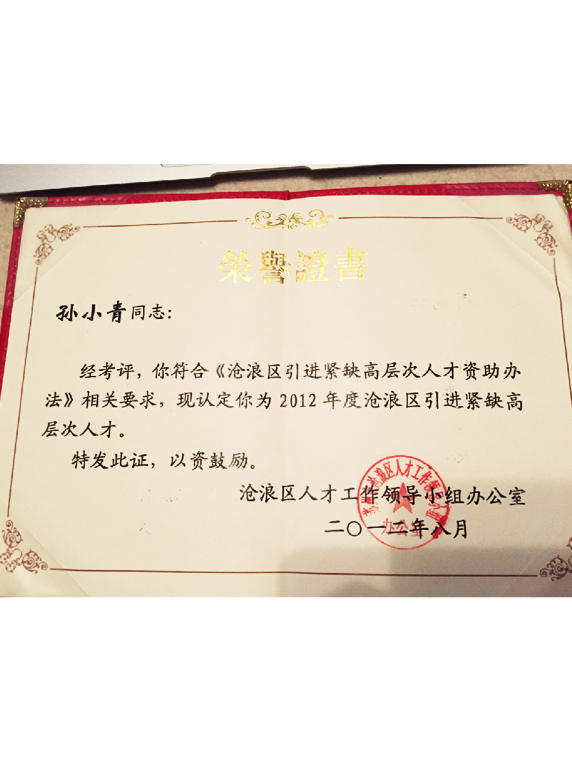 榮譽證書
孙小青同志：
经考评，你符合《沧浪区引进紧缺高层次人才资助办
法》相关要求，现认定你为2012年度沧浪区引进紧缺高
层次人才。
特发此证，以资鼓励。
沧浪区人才工作领导小组办公室
二〇一二年八月
办公室